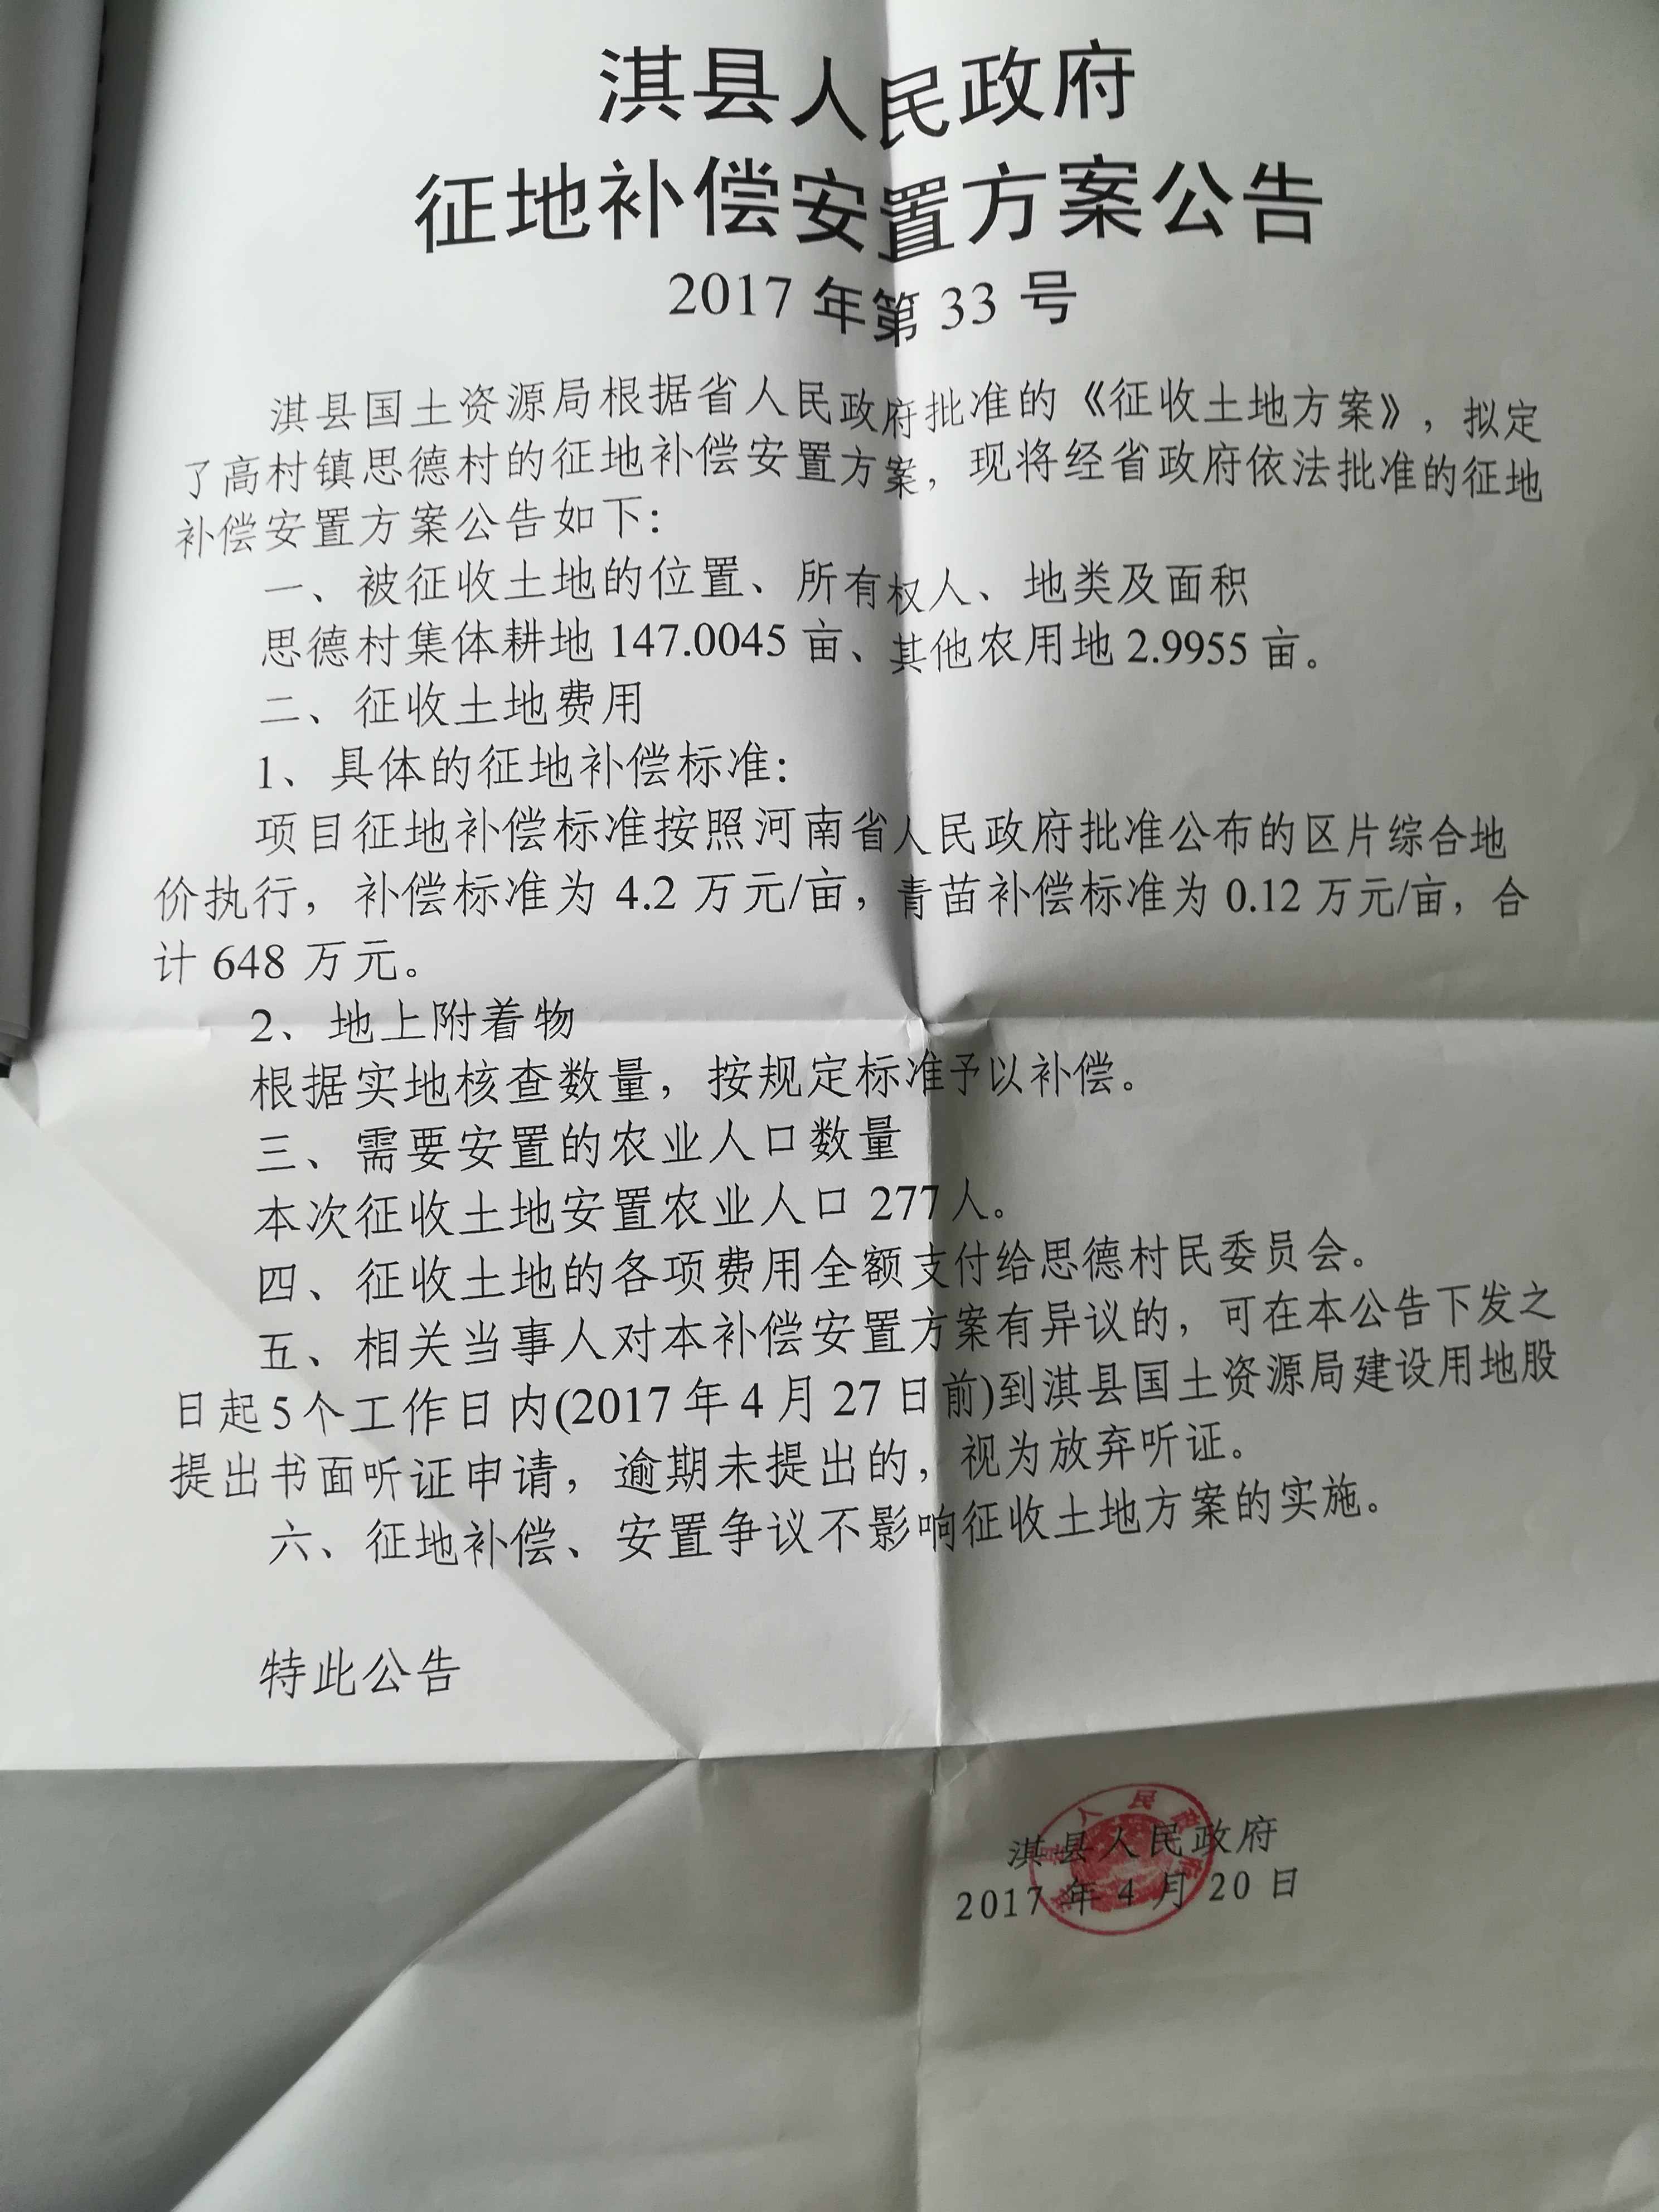 淇县人民政府
征地补偿安置方案公告
2017年第33号
淇县国土资源局根据省人民政府批准的《征收土地方案》，拟定
了高村镇思德村的征地补偿安置方案，现将经省政府依法批准的征地
补偿安置方案公告如下：
一、被征收土地的位置、所有权人、地类及面积
思德村集体耕地147.0045亩、其他农用地2.9955亩。
二、征收土地费用
1、具体的征地补偿标准：
项目征地补偿标准按照河南省人民政府批准公布的区片综合地
价执行，补偿标准为4.2万元/亩，青苗补偿标准为0.12万元/亩，合
计648万元。
2、地上附着物
根据实地核查数量，按规定标准予以补偿。
三、需要安置的农业人口数量
本次征收土地安置农业人口277人。
四、征收土地的各项费用全额支付给思德村民委员会。
五、相关当事人对本补偿安置方案有异议的，可在本公告下发之
日起5个工作日内(2017年4月27日前)到淇县国土资源局建设用地股
提出书面听证申请，逾期未提出的，视为放弃听证。
六、征地补偿、安置争议不影响征收土地方案的实施。
特此公告
淇县人民政府
2017年4月20日